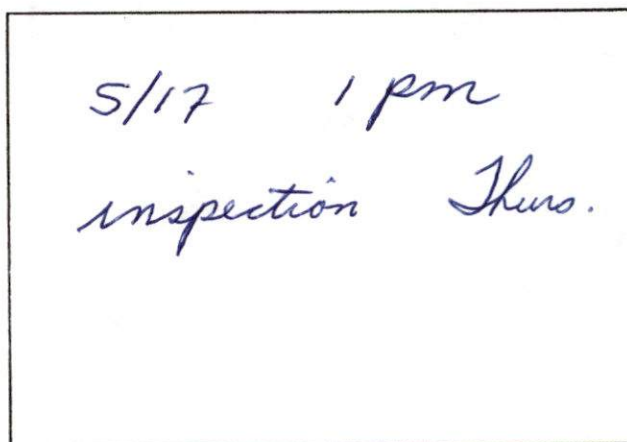 5/17 1 pm
inspection Thurs.